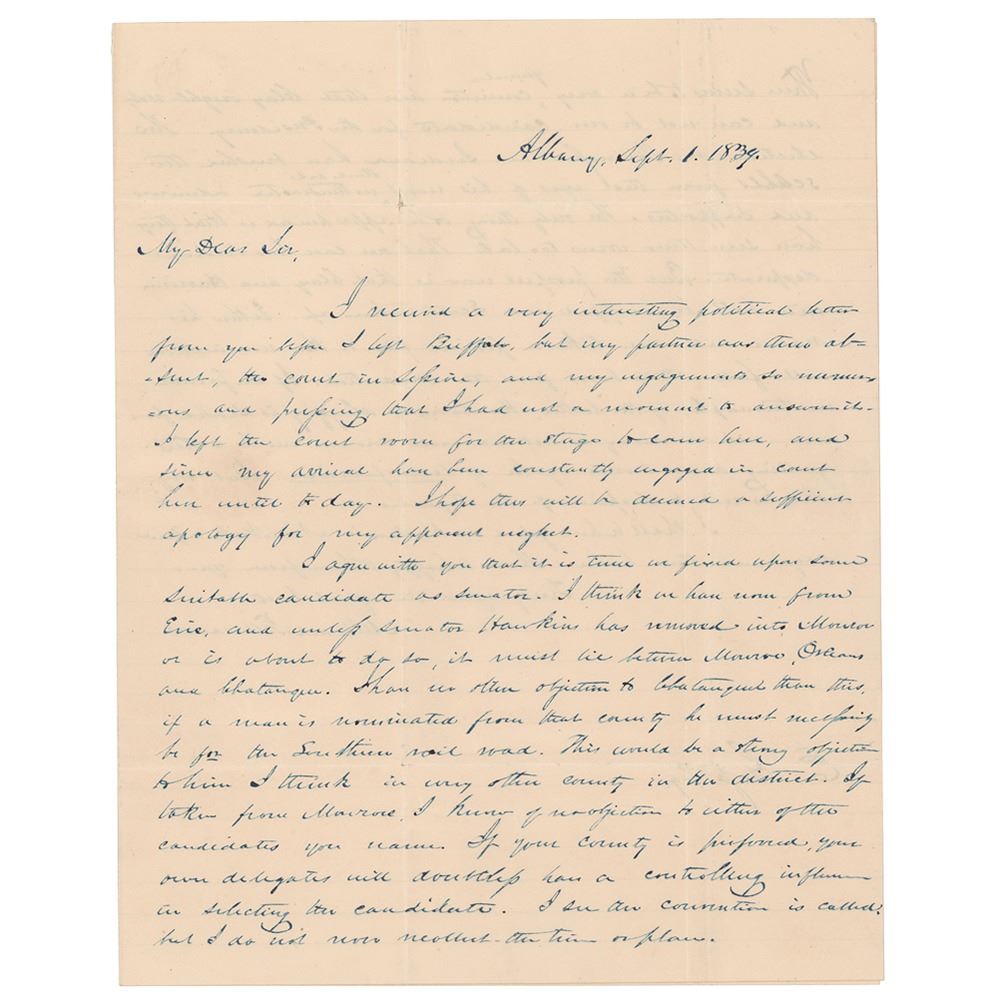 Albany, Sept. 1. 1839.
My Dear Sir,
I received a very interesting political letter
from you before I left Buffalo, but my partner was then ab-
-sent, the court in session, and my engagements so numer-
-ous and pressing that I had not a moment to answer it.
I left the court room for the stage to come here, and
since my arrival have been constantly engaged in court
here until to day. I hope this will be deemed a sufficient
apology for my apparent neglect.
I agree with you that it is time we fixed upon some
suitable candidate as senator. I think we have none from
Erie, and unless Senator Hawkins has removed into Monroe
or is about to do so, it must lie between Monroe, Orleans
and Chatauque. I have no other objection to Chatauque than this,
if a man is nominated from that county he must necessarily
be for the Southern rail road. This would be a strong objection
to him I think in every other county in the district. If
taken from Monroe, I know of no objection to either of the
candidates you name. If your county is preferred, your
own delegates will doubtless have a controlling influence
in selecting the candidate. I see the convention is called,
but I do not now recollect the time or place.